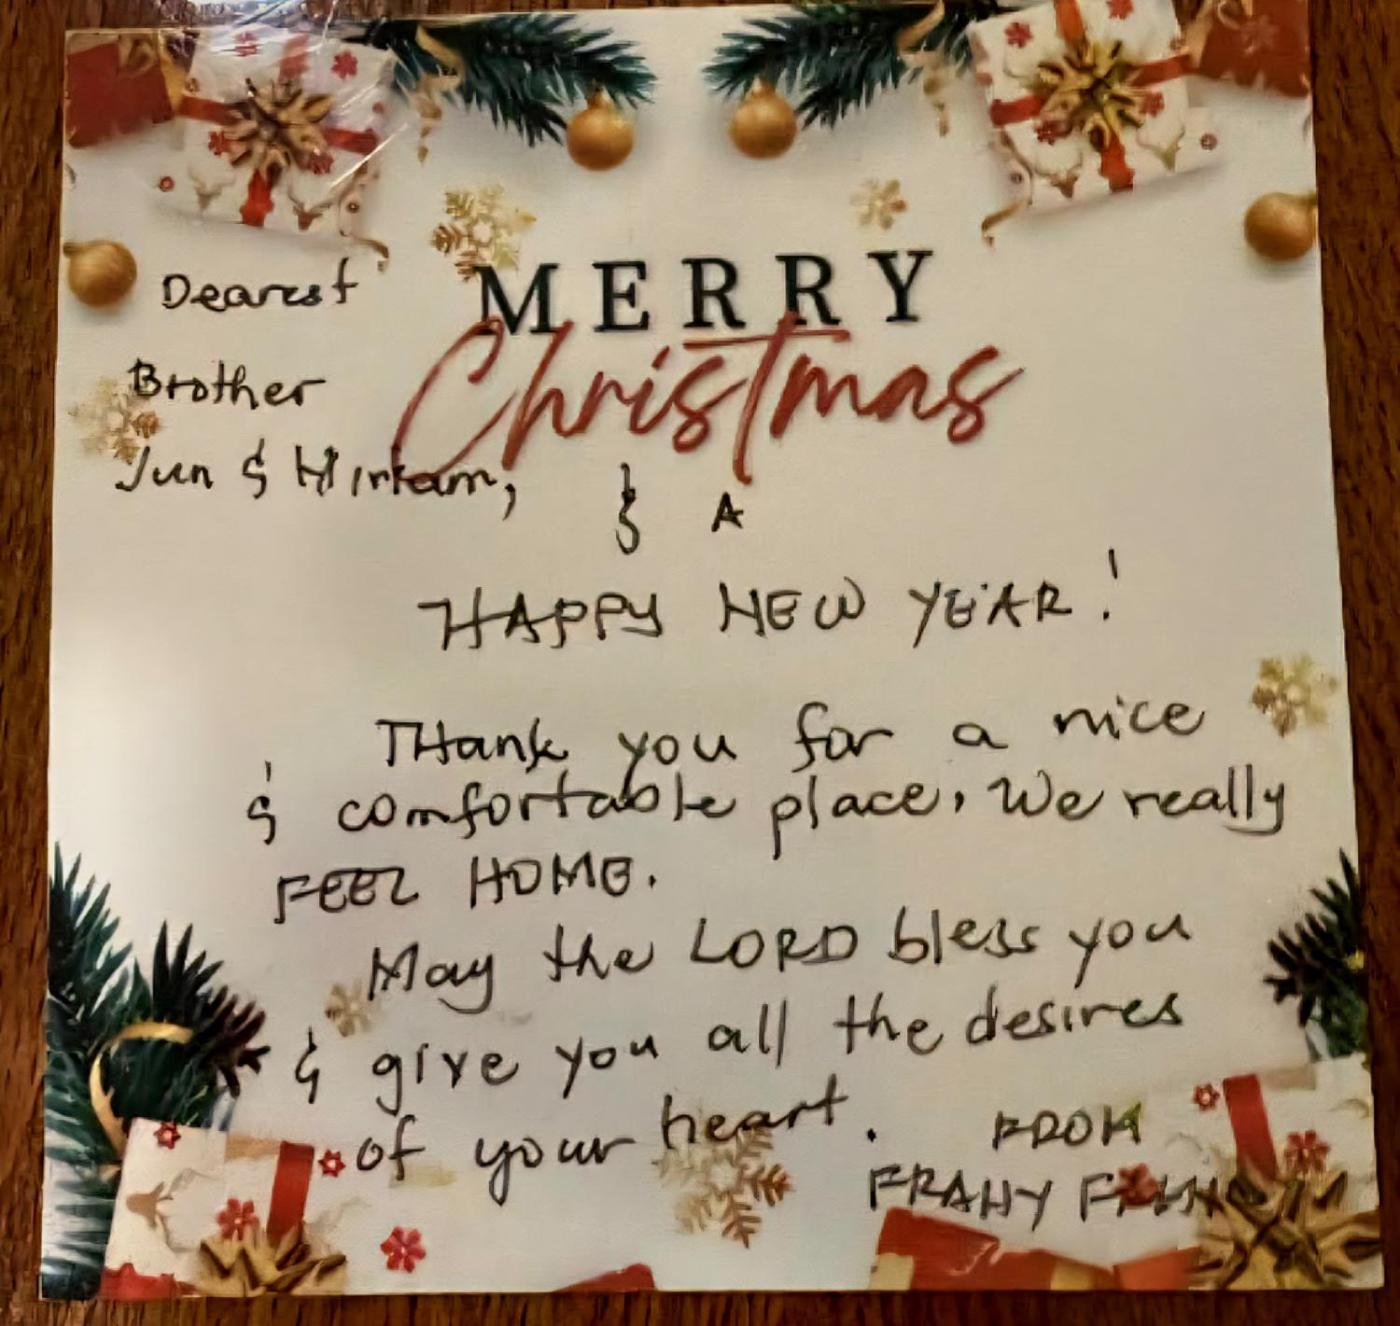 MERRY
Christmas
Dearest
Brother
Jun & Hirkam,
& A
HAPPY NEW YEAR!
THank you for a nice
& comfortable place. We really
FEEL HOME.
May the LORD bless you
& give you all the desires
of your heart.
FROM
FRANY